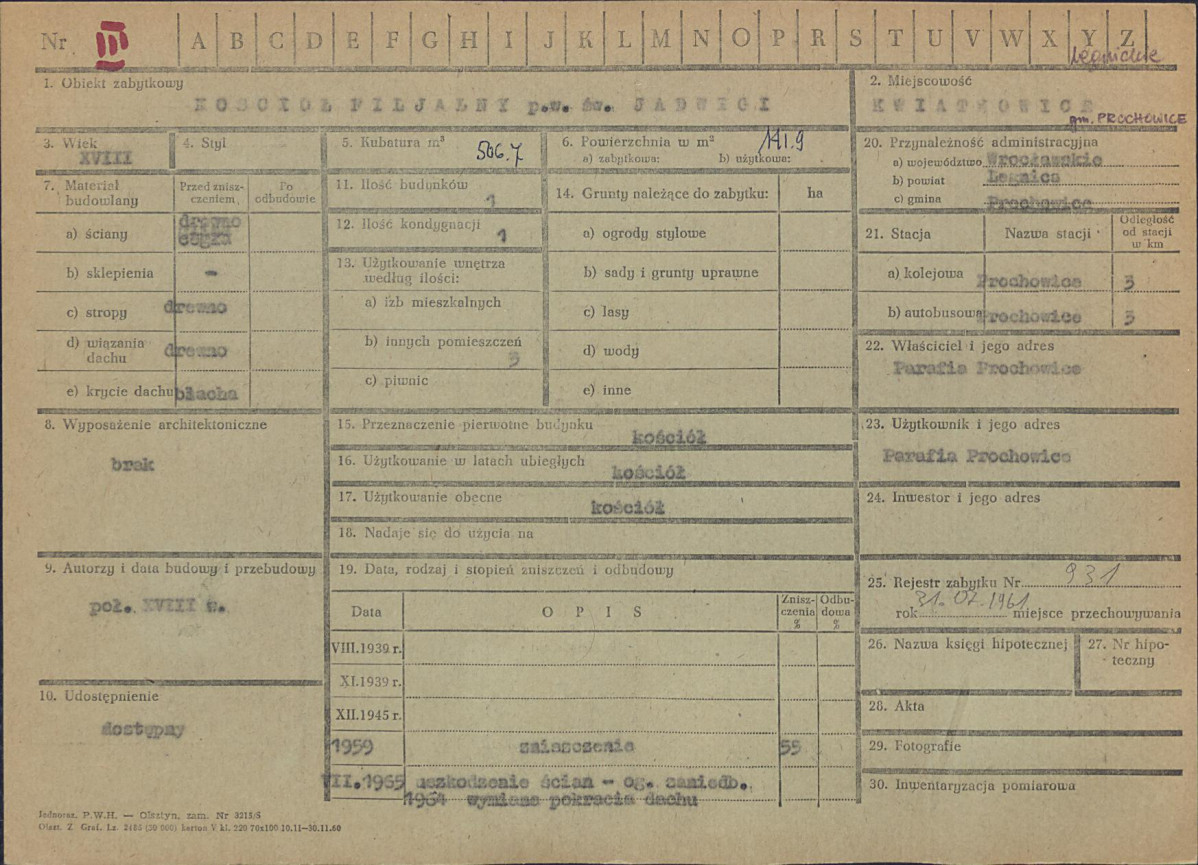 Nr III A B C D E F G H I J K L M N O P R S T U V W X Y Z
legnickie
1. Obiekt zabytkowy
KOŚCIOŁ FILJALNY p.w. św. JADWIGI
2. Miejscowość
KWIATKOWICE
gm. PROCHOWICE
3. Wiek
XVIII
4. Styl
5. Kubatura m³
506.7
6. Powierzchnia w m²
191.9
a) zabytkowa: b) użytkowa:
7. Materiał budowlany
Przed zniszczeniem
Po odbudowie
a) ściany drewno cegła
b) sklepienia -
c) stropy drewno
d) wiązania dachu drewno
e) krycie dachu blacha
8. Wyposażenie architektoniczne
brak
9. Autorzy i data budowy i przebudowy
poł. XVIII w.
10. Udostępnienie
dostępny
11. Ilość budynków
1
12. Ilość kondygnacji
1
13. Użytkowanie wnętrza według ilości:
a) izb mieszkalnych
b) innych pomieszczeń
3
c) piwnic
14. Grunty należące do zabytku: ha
a) ogrody stylowe
b) sady i grunty uprawne
c) lasy
d) wody
e) inne
15. Przeznaczenie pierwotne budynku
kościół
16. Użytkowanie w latach ubiegłych
kościół
17. Użytkowanie obecne
kościół
18. Nadaje się do użycia na
19. Data, rodzaj i stopień zniszczeń i odbudowy
Data OPIS Zniszczenia % Odbudowa %
VIII.1939 r.
XI.1939 r.
XII.1945 r.
1959 zniszczenie 55
VII.1965 uszkodzenie ścian - og. zaniedb.
1964 wymiana pokrycia dachu
20. Przynależność administracyjna
a) województwo Wrocławskie
b) powiat Legnica
c) gmina Prochowice
21. Stacja Nazwa stacji Odległość od stacji w km
a) kolejowa Prochowice 3
b) autobusowa Prochowice 3
22. Właściciel i jego adres
Parafia Prochowice
23. Użytkownik i jego adres
Parafia Prochowice
24. Inwestor i jego adres
25. Rejestr zabytku Nr 931
rok 31.07.1961 miejsce przechowywania
26. Nazwa księgi hipotecznej
27. Nr hipoteczny
28. Akta
29. Fotografie
30. Inwentaryzacja pomiarowa
Jednoraz. P.W.H. — Olsztyn, zam. Nr 3215/S
Olszt. Z. Graf. Lz. 2485 (30 000) karton V kl. 220 70x100 10.11—30.11.60